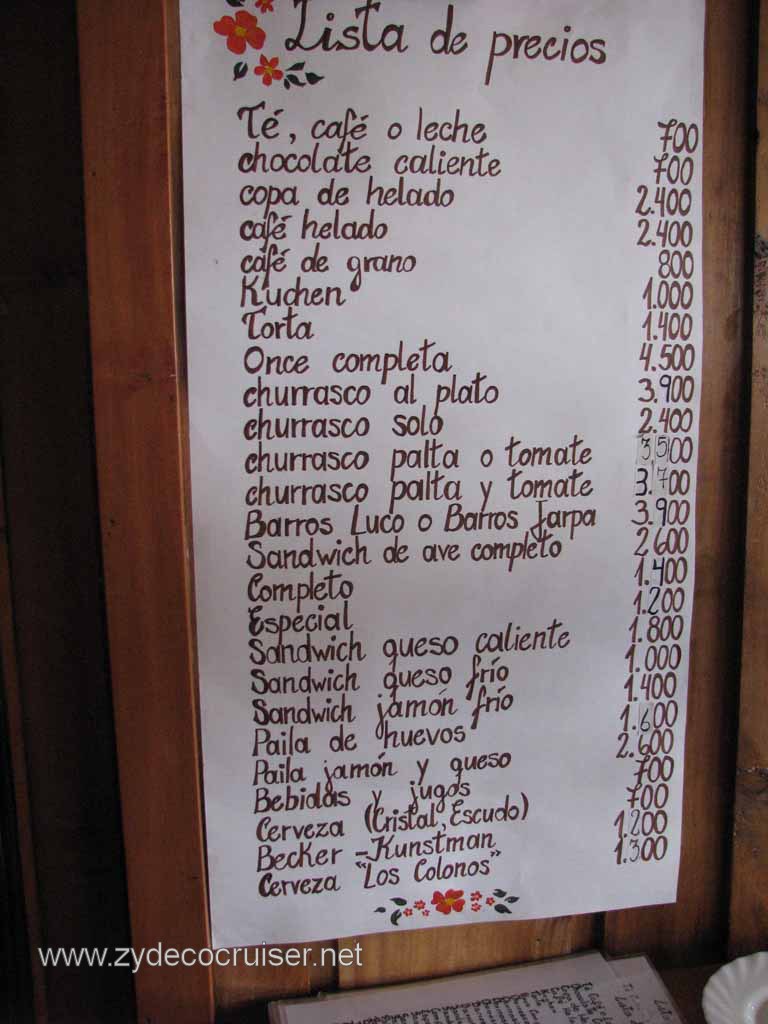 Lista de precios
Té, café o leche 700
chocolate caliente 700
copa de helado 2.400
café helado 2.400
café de grano 800
Kuchen 1.000
Torta 1.400
Once completa 4.500
churrasco al plato 3.900
churrasco solo 2.400
churrasco palta o tomate 3500
churrasco palta y tomate 3.700
Barros Luco o Barros Jarpa 3.900
Sandwich de ave completo 2600
Completo 1.400
Especial 1.200
Sandwich queso caliente 1.800
Sandwich queso frío 1.000
Sandwich jamón frío 1.400
Paila de huevos 1.600
Paila jamón y queso 2.600
Bebidas y jugos 700
Cerveza (Cristal, Escudo) 700
Becker - Kunstman 1.200
Cerveza "Los Colonos" 1.300
www.zydecocruiser.net